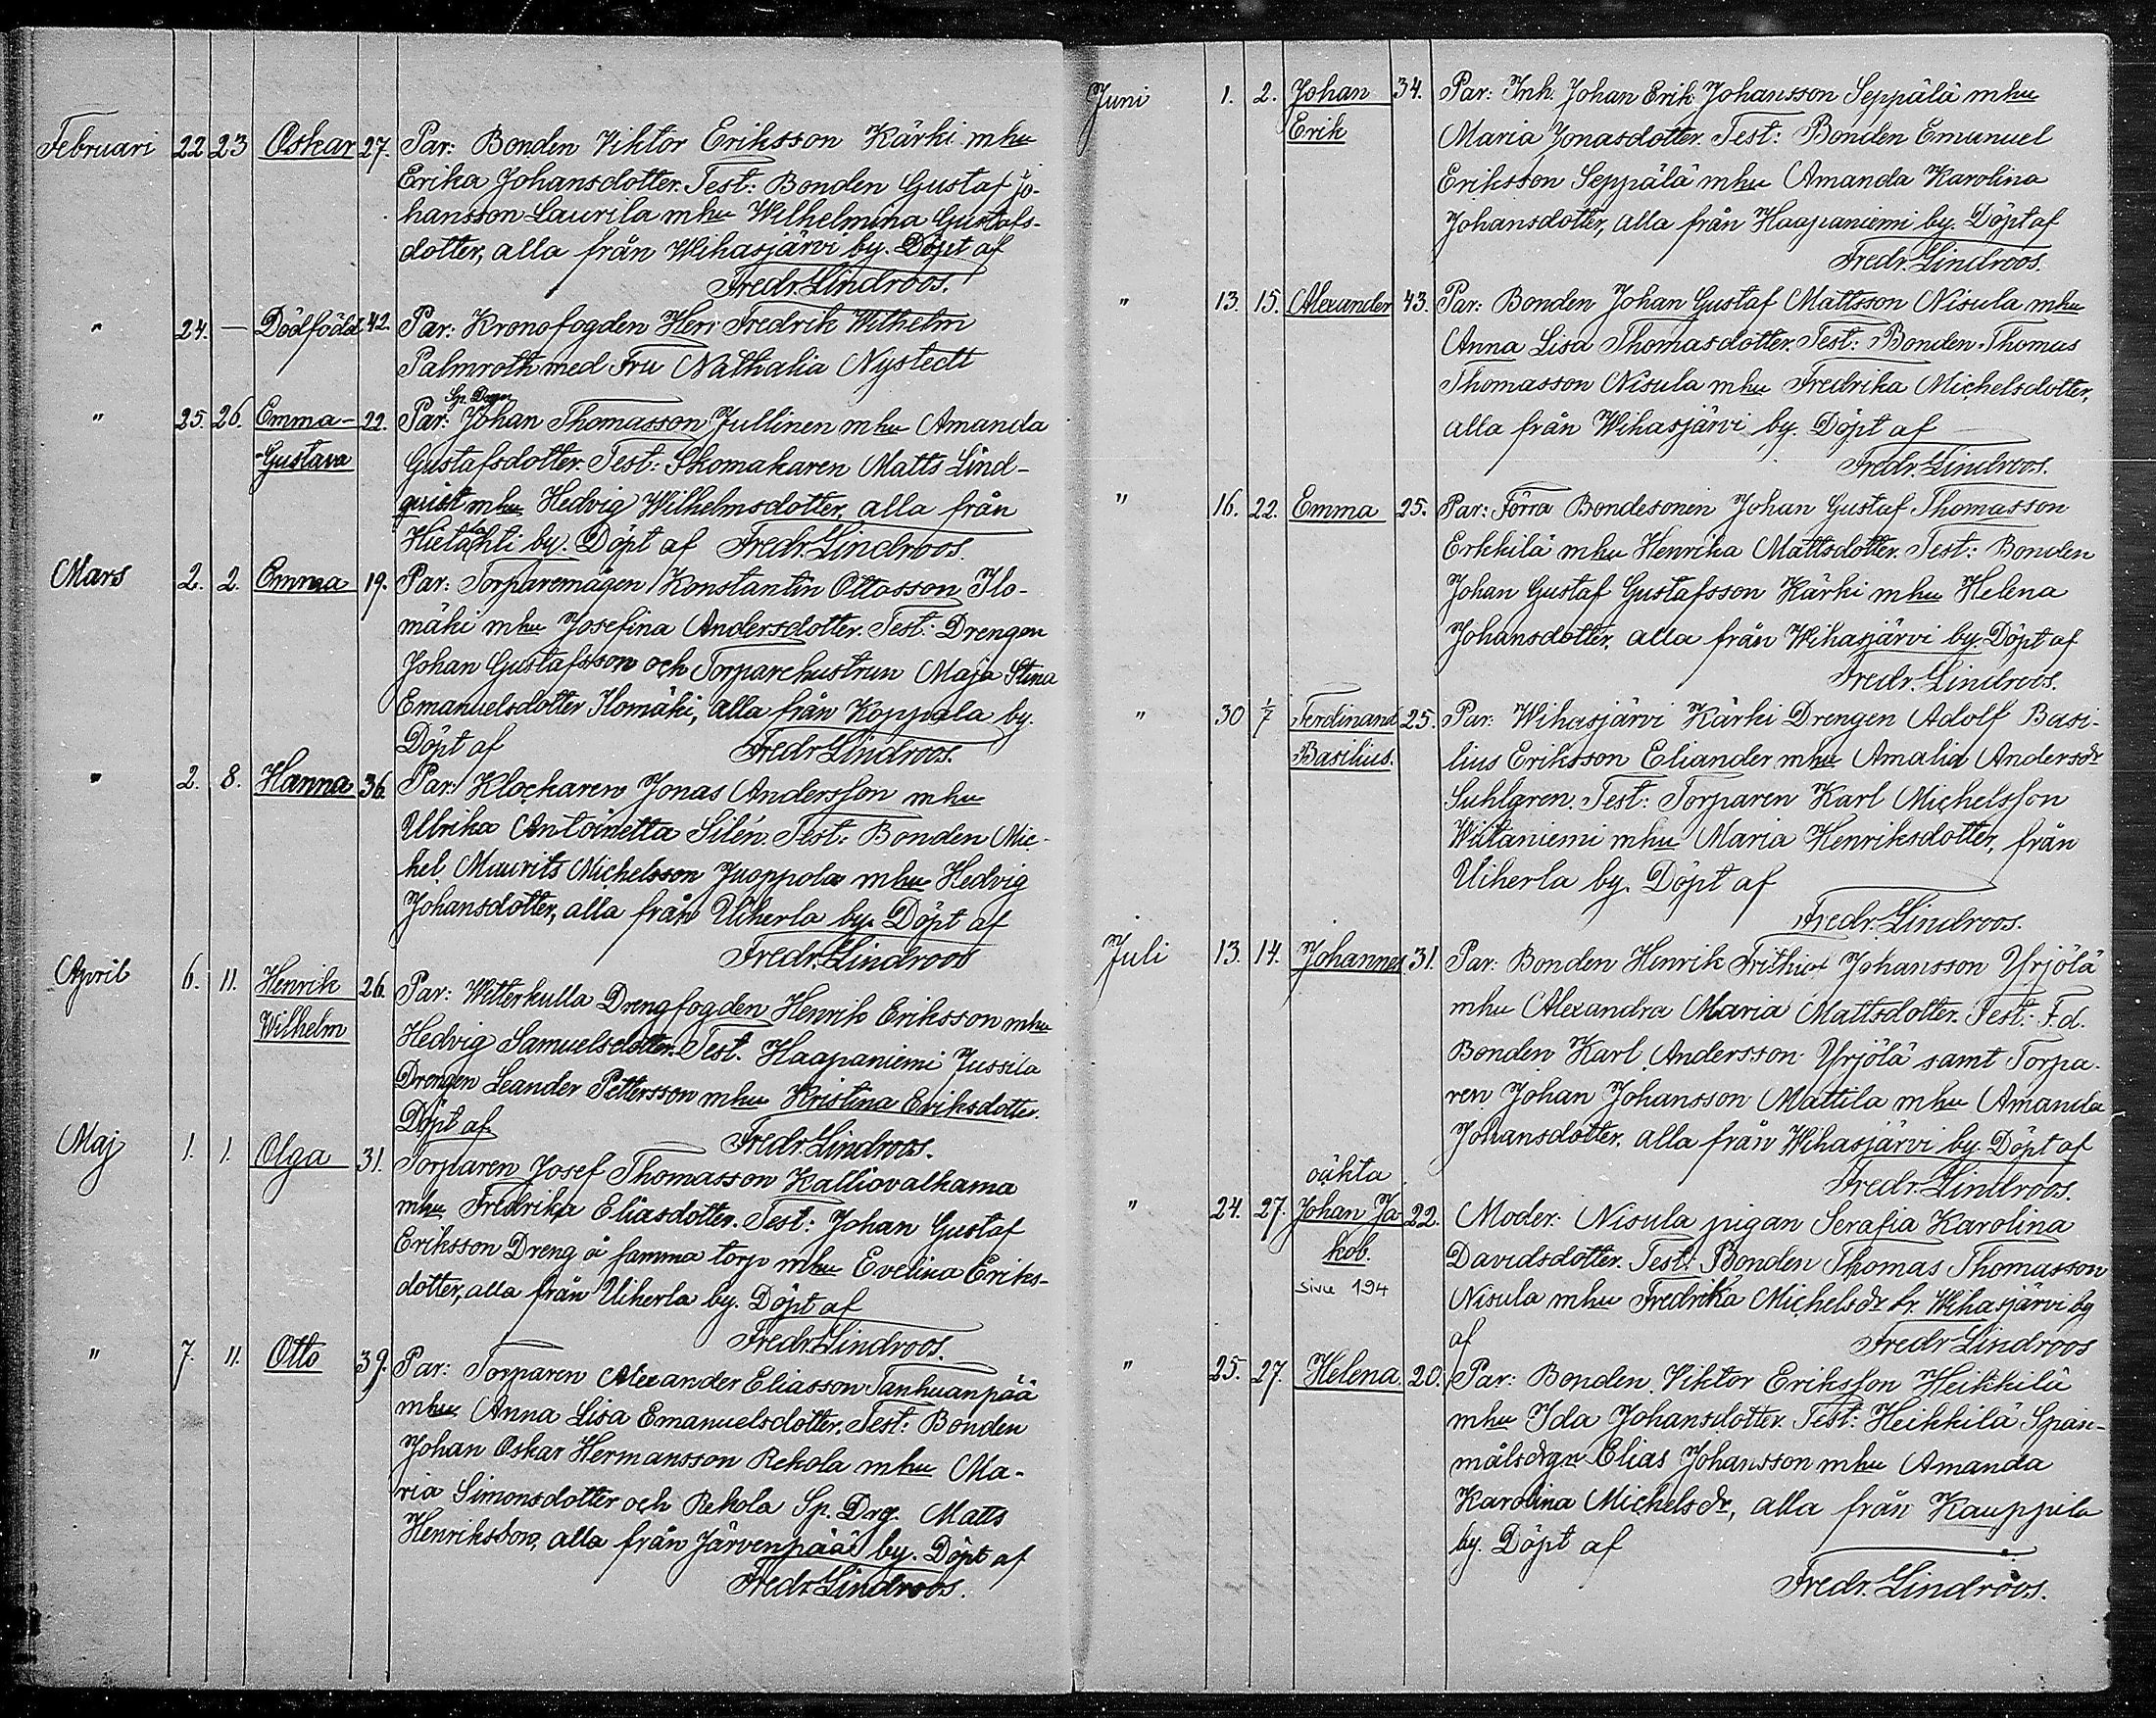 Februari 22 23 Oskar 27. Par: Bonden Viktor Eriksson Kärki mhu
Erika Johansdotter. Test: Bonden Gustaf Jo-
hansson Laurila mhu Wilhelmina Gustafs-
dotter, alla från Wihasjärvi by. Döpt af
Fredr. Lindroos.
" 24. — Dödfödd 42. Par: Kronofogden Herr Fredrik Wilhelm
Palmroth med Fru Nathalia Nystedt
Sp. Drgn
" 25. 26. Emma- 22. Par: Johan Thomasson Jullinen mhu Amanda
-Gustava Gustafsdotter. Test: Skomakaren Matts Lind-
quist mhu Hedvig Wilhelmsdotter, alla från
Hietahti by. Döpt af Fredr. Lindroos.
Mars 2. 2. Emma 19. Par: Torparemågen Konstantin Ottosson Ilo-
mäki mhu Josefina Andersdotter. Test: Drengen
Johan Gustafsson och Torparehustrun Maja Stina
Emanuelsdotter Ilomäki, alla från Koppala by.
Döpt af Fredr. Lindroos.
" 2. 8. Hanna 36. Par: Klockaren Jonas Andersson mhu
Ulrika Antoinetta Silén. Test: Bonden Mic-
hel Maurits Michelsson Juoppola mhu Hedvig
Johansdotter, alla från Uiherla by. Döpt af
Fredr. Lindroos
April 6. 11. Henrik 26. Par: Witterkulla Drengfogden Henrik Eriksson mhu
Wilhelm Hedvig Samuelsdotter. Test. Haapaniemi Jussila
Drengen Leander Pettersson mhu Kristina Eriksdotter.
Döpt af Fredr. Lindroos.
Maj 1. 1. Olga 31. Torparen Josef Thomasson Kalliovalkama
mhu Fredrika Eliasdotter. Test: Johan Gustaf
Eriksson Dreng å samma torp mhu Evelina Eriks-
dotter, alla från Uiherla by. Döpt af
Fredr. Lindroos.
" 7. 11. Otto 39. Par: Torparen Alexander Eliasson Tanhuanpää
mhu Anna Lisa Emanuelsdotter. Test: Bonden
Johan Oskar Hermansson Rekola mhu Ma-
ria Simonsdotter och Rekola Sp. Drg. Matts
Henriksson, alla från Järvenpää by. Döpt af
Fredr. Lindroos.
Juni 1. 2. Johan 34. Par: Inh. Johan Erik Johansson Seppälä mhu
Erik Maria Jonasdotter. Test: Bonden Emanuel
Eriksson Seppälä mhu Amanda Karolina
Johansdotter, alla från Haapaniemi by. Döpt af
Fredr. Lindroos.
" 13. 15. Alexander 43. Par: Bonden Johan Gustaf Mattsson Nisula mhu
Anna Lisa Thomasdotter. Test: Bonden Thomas
Thomasson Nisula mhu Fredrika Michelsdotter,
alla från Wihasjärvi by. Döpt af
Fredr. Lindroos.
" 16. 22. Emma 25. Par: Förra Bondesonen Johan Gustaf Thomasson
Erkkilä mhu Henrika Mattsdotter. Test: Bonden
Johan Gustaf Gustafsson Kärki mhu Helena
Johansdotter, alla från Wihasjärvi by. Döpt af
Fredr. Lindroos.
" 30 1/7 Ferdinand 25. Par: Wihasjärvi Kärki Drengen Adolf Basi-
Basilius. lius Eriksson Eliander mhu Amalia Andersdr
Suhlgren. Test: Torparen Karl Michelsson
Wiitaniemi mhu Maria Henriksdotter, från
Uiherla by. Döpt af
Fredr. Lindroos.
Juli 13. 14. Johannes 31. Par: Bonden Henrik Frithiof Johansson Yrjölä
mhu Alexandra Maria Mattsdotter. Test: F.d.
Bonden Karl Andersson Yrjölä samt Torpa-
ren Johan Johansson Mattila mhu Amanda
Johansdotter, alla från Wihasjärvi by. Döpt af
oäkta Fredr. Lindroos.
" 24. 27. Johan Ja- 22. Moder: Nisula pigan Serafia Karolina
kob. Davidsdotter. Test: Bonden Thomas Thomasson
sivu 194 Nisula mhu Fredrika Michelsdr fr. Wihasjärvi by
af Fredr Lindroos
" 25. 27. Helena 20. Par: Bonden Viktor Eriksson Heikkilä
mhu Ida Johansdotter. Test: Heikkilä Span-
målsdrgn Elias Johansson mhu Amanda
Karolina Michelsdr, alla från Kauppila
by. Döpt af
Fredr. Lindroos.